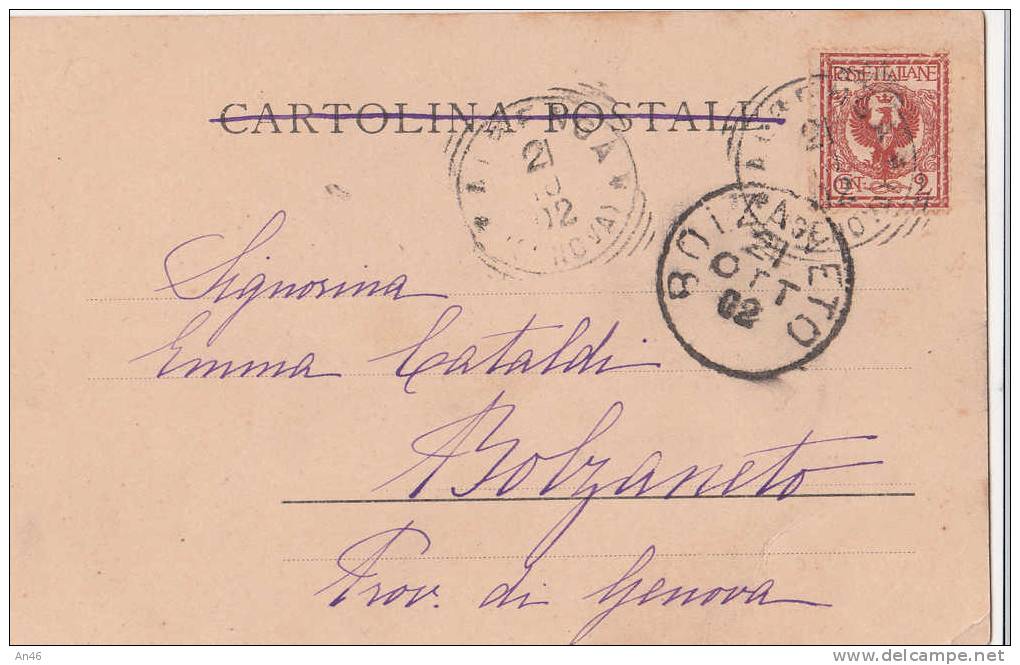 CARTOLINA POSTALE
POSTE ITALIANE
CEN. 2
ALBENGA
21
02
(GENOVA)
BOLZANETO
21
OTT
02
Signorina
Emma Cataldi
Bolzaneto
Prov. di Genova
An46
delcampe.net